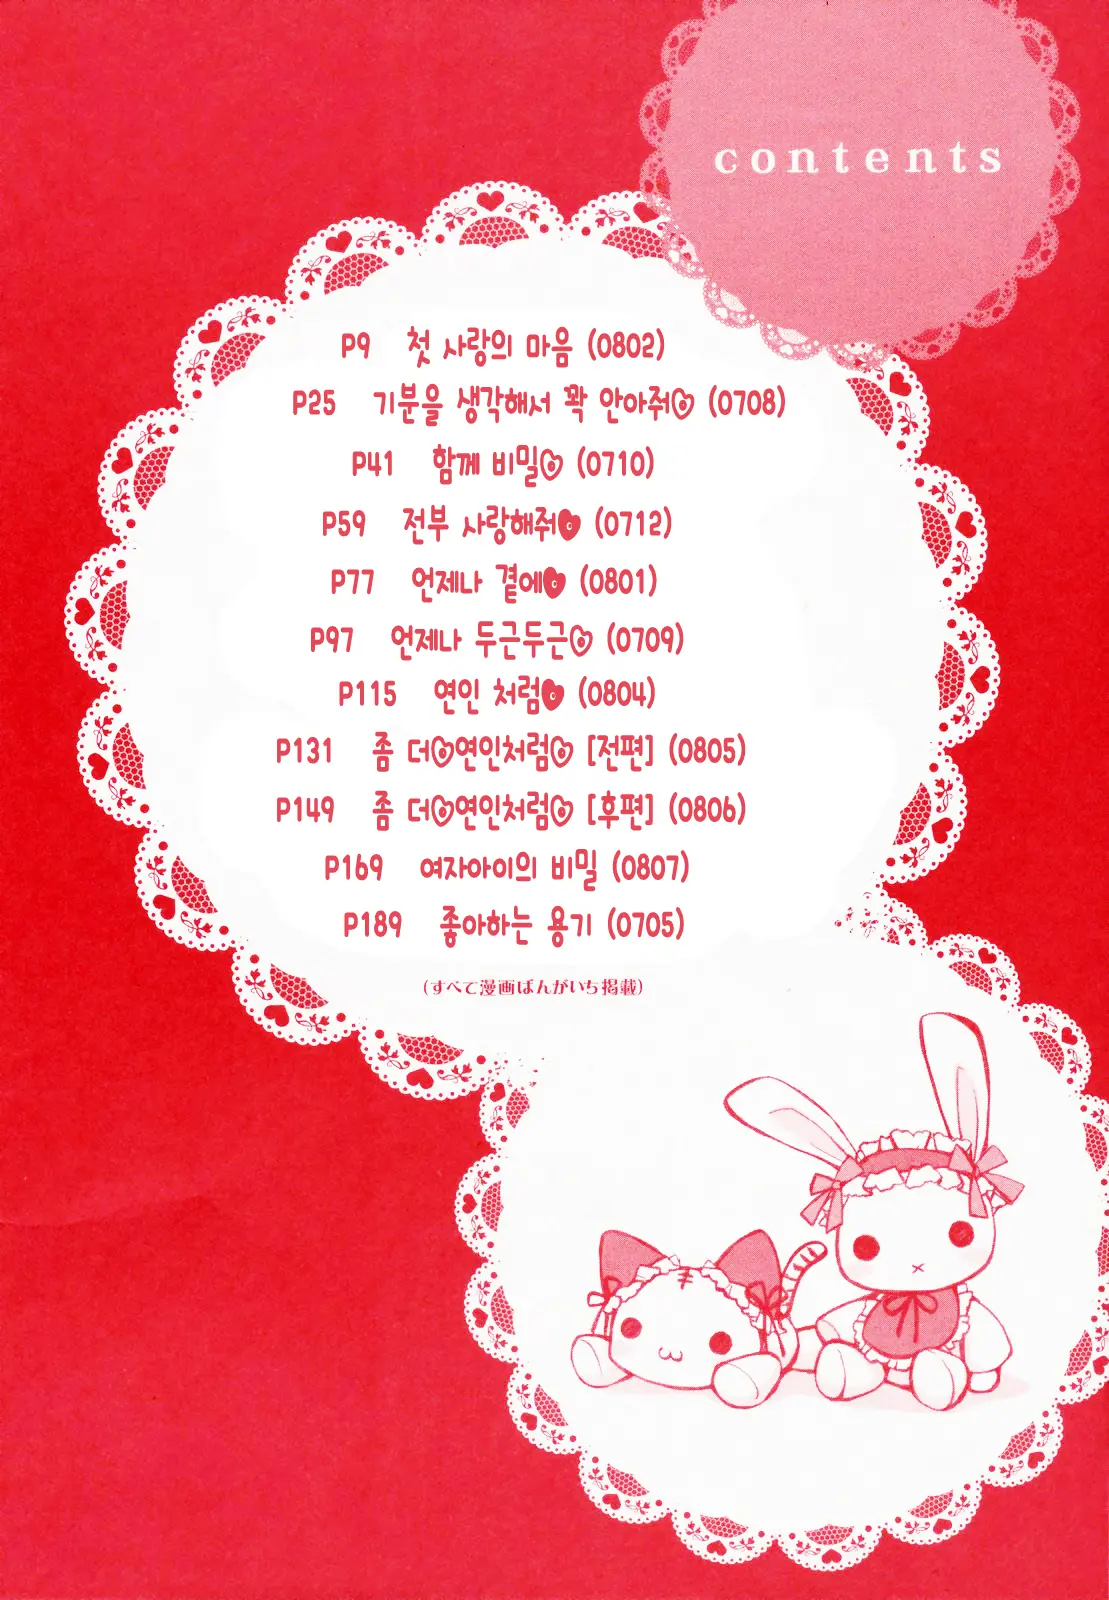 contents
P9 첫 사랑의 마음 (0802)
P25 기분을 생각해서 꽉 안아줘♡ (0708)
P41 함께 비밀♡ (0710)
P59 전부 사랑해줘♥ (0712)
P77 언제나 곁에♥ (0801)
P97 언제나 두근두근♡ (0709)
P115 연인 처럼♥ (0804)
P131 좀 더♡연인처럼♡ [전편] (0805)
P149 좀 더♡연인처럼♡ [후편] (0806)
P169 여자아이의 비밀 (0807)
P189 좋아하는 용기 (0705)
(すべて漫画ばんがいち掲載)